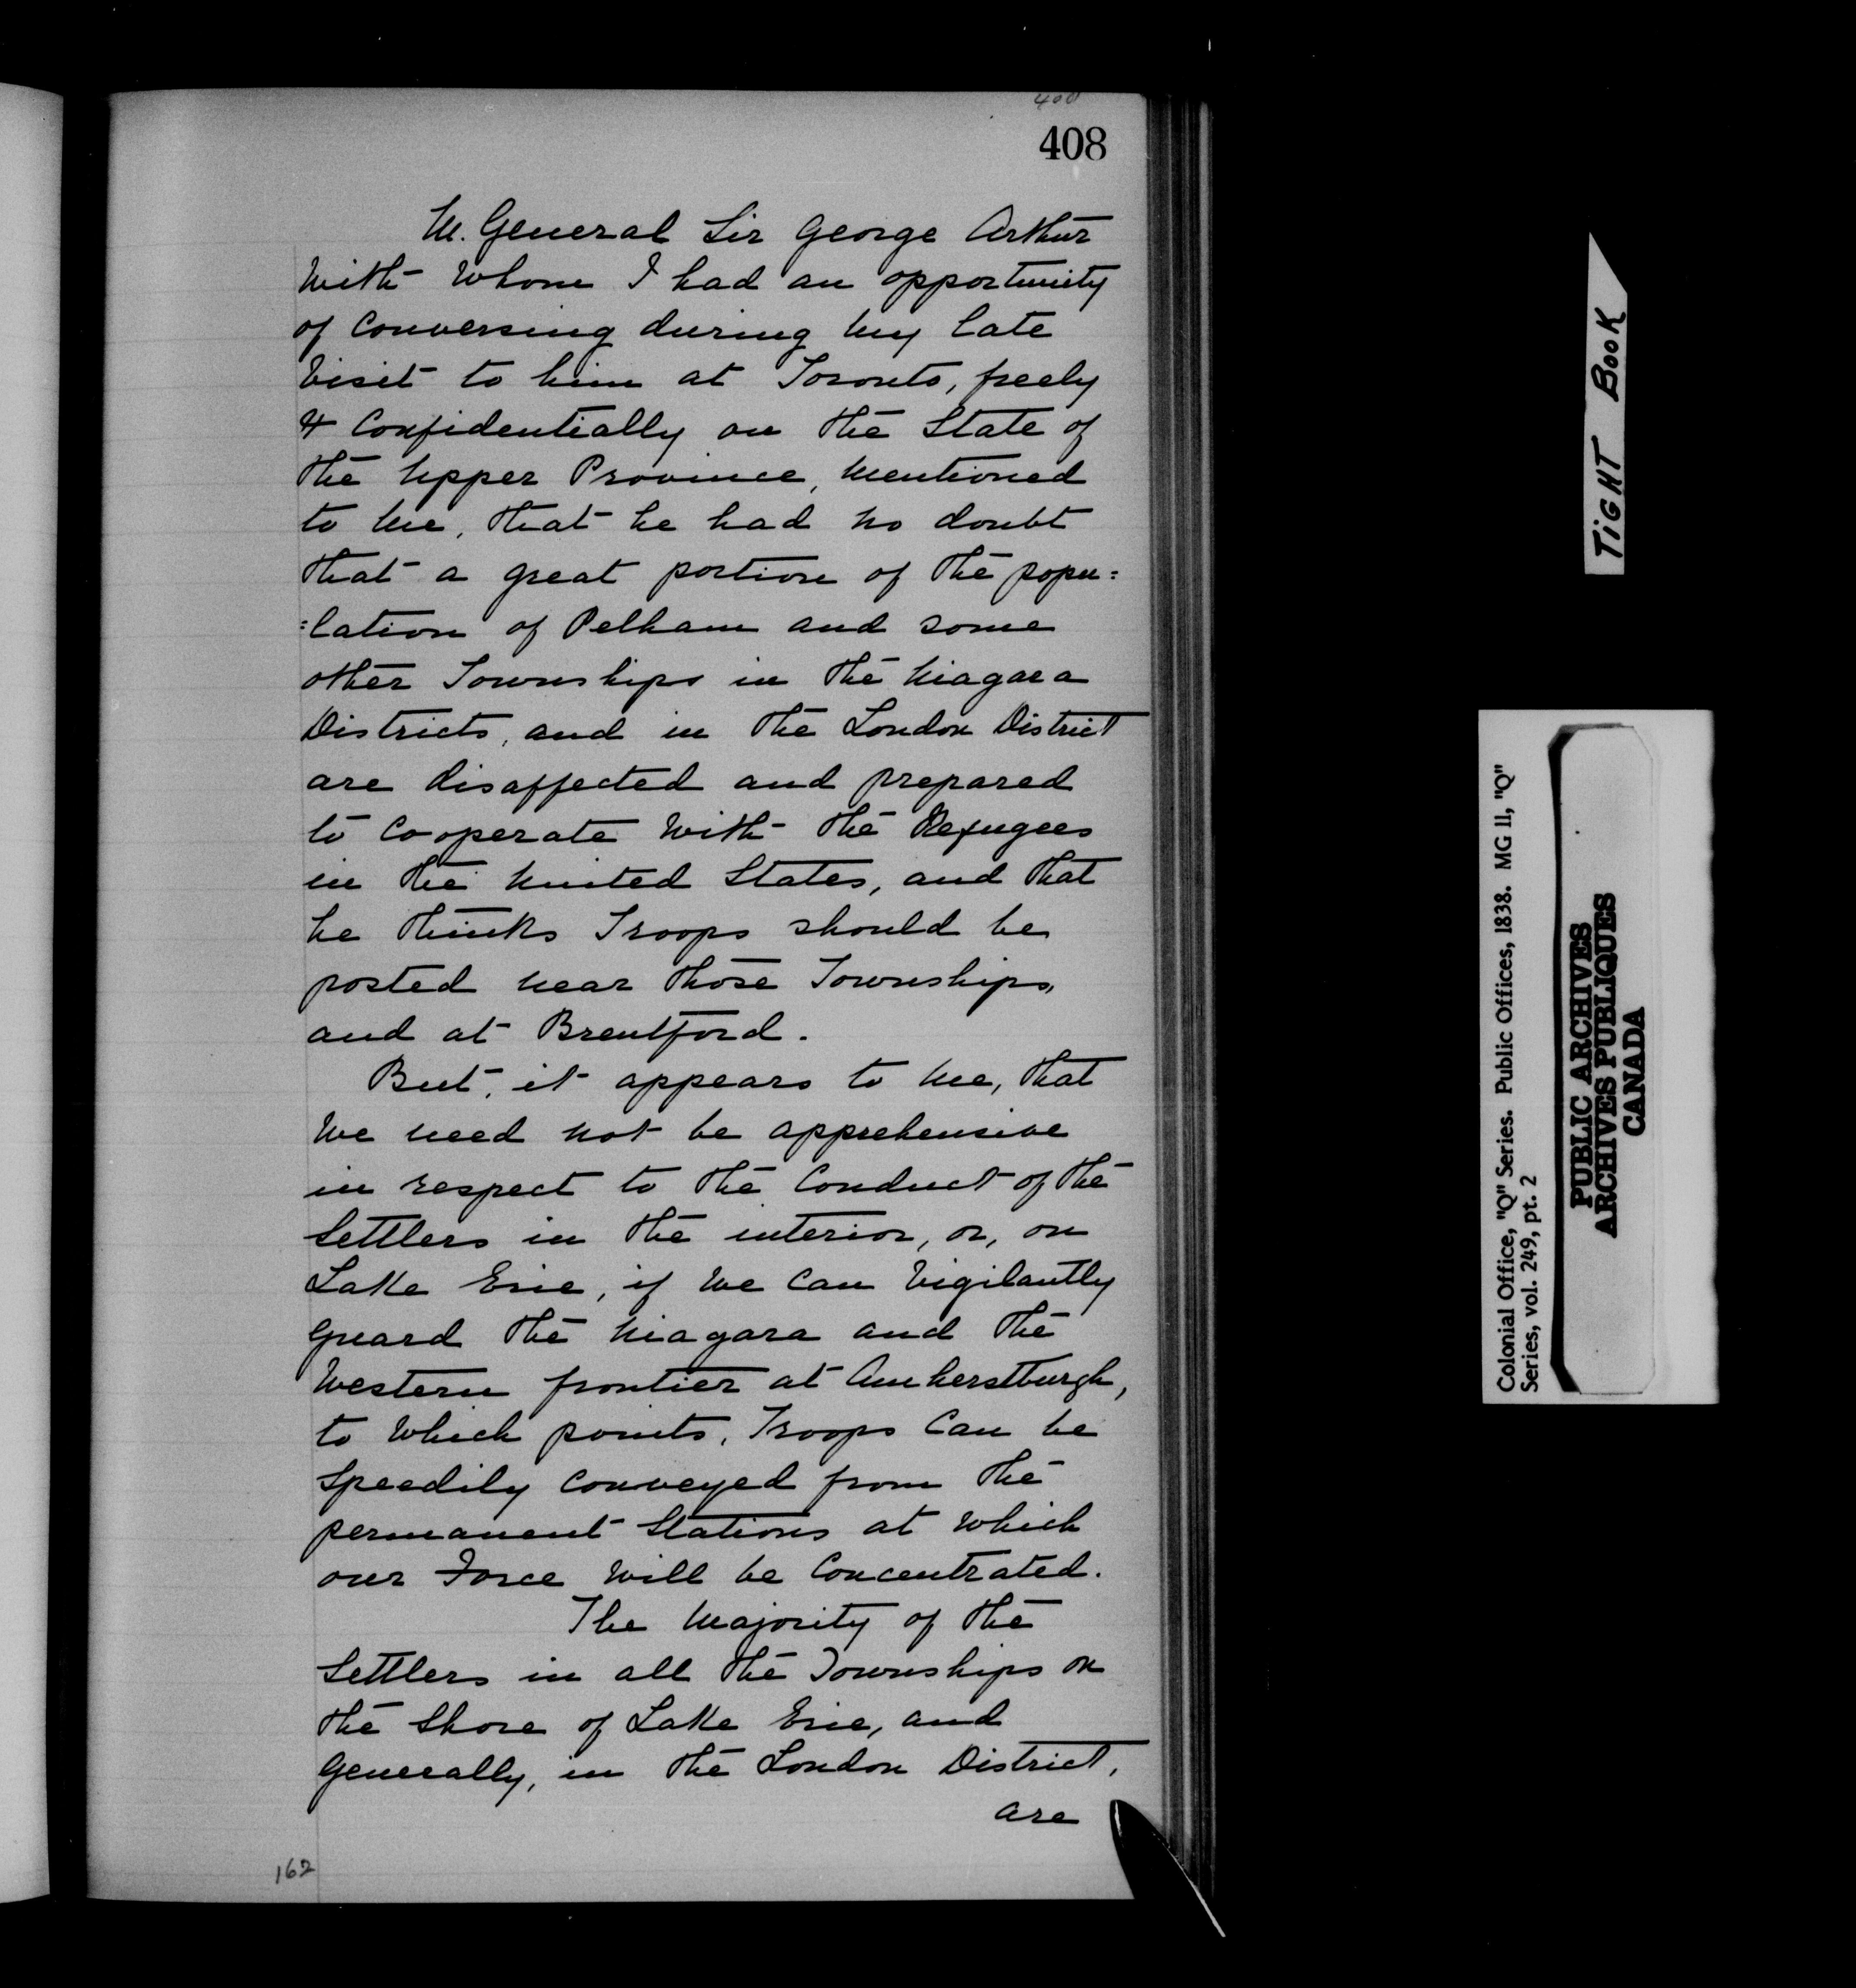 400
408
M. General Sir George Arthur
with whom I had an opportunity
of Conversing during my late
visit to him at Toronto, freely
& Confidentially on the State of
the Upper Province, mentioned
to me, that he had no doubt
that a great portion of the popu=
=lation of Pelham and some
other Townships in the Niagara
Districts, and in the London District
are disaffected and prepared
to Co-operate with the Refugees
in the United States, and that
he thinks Troops should be
posted near those Townships,
and at Brentford.
But, it appears to me, that
we need not be apprehensive
in respect to the Conduct of the
Settlers in the interior, or, on
Lake Erie, if we can vigilantly
guard the Niagara and the
Western frontier at Amherstburgh,
to which points, Troops Can be
Speedily Conveyed from the
permanent Stations at which
our Force will be Concentrated.
The Majority of the
Settlers in all the Townships on
the Shore of Lake Erie, and
Generally, in the London District,
are
162
TIGHT BOOK
Colonial Office, "Q" Series. Public Offices, 1838. MG 11, "Q"
Series, vol. 249, pt. 2
PUBLIC ARCHIVES
ARCHIVES PUBLIQUES
CANADA